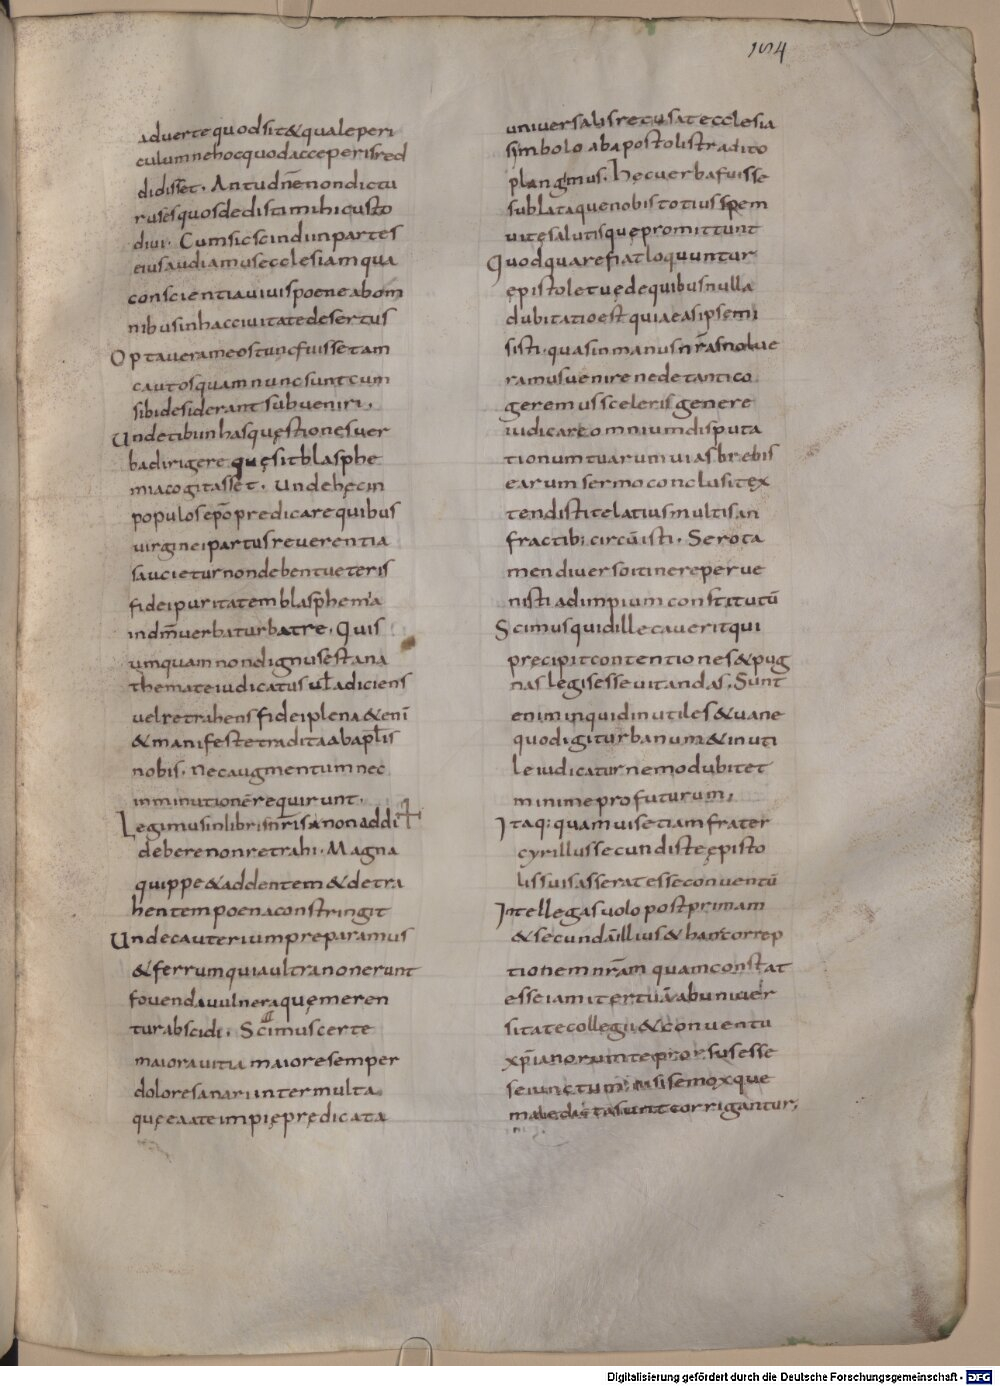 154
aduerte quod sit & quale peri
culum ne hoc quod acceperis red
didisset. An tu dñe non dictu
rus es quos dedisti mihi custo
diui. Cum sic scindi in partes
eius audiamus ecclesiam qua
conscientia uiuis poene ab om
nibus in hac ciuitate desertus
Optaueram eos tunc fuisse tam
cautos quam nunc sunt cum
sibi desiderant subueniri,
Unde tibi in has quęstiones uer
ba dirigere quę sit blasphe
mia cogitasset. Unde hęc in
populos epõ predicare quibus
uirginei partus reuerentia
saucietur non debent ueteris
fidei puritatem blasphema
in dm̄ uerba turbatre. Quis
umquam non dignus est ana
themate iudicatus ul̄ adiciens
uel retrahens fidei plena & eni
& manifeste tradita ab apl̄is
nobis. nec augmentum nec
inminutionē requirunt.
Legimus in libris nr̄is non addi
debere non retrahi. Magna
quippe & addentem & detra
hentem poena constringit
Unde cauterium preparamus
& ferrum quia ultra non erunt
fouenda uulnera quę meren
tur abscidi. Scimus certe
maiora uitia maiore semper
dolore sanari inter multa
quę ea a te impię prędicata
uniuersalis recusat ecclesia
simbolo ab apostolis tradito
plangimus. hęc uerba fuisse
sublata quę nobis totius spem
uitę salutisquę promittunt
Quod quare fiat loquuntur
epistole tuę de quibus nulla
dubitatio est quia eas ipse mi
sisti. quas in manus nr̄as nolue
ramus uenire ne de tanti co
geremus sceleris genere
iudicare omnium disputa
tionum tuarum uias brebis
earum sermo conclusit ex
tendisti te latius multis an
fractib; circūisti. Sero ta
men diuerso itinere perue
nisti ad impium constitutū
Scimus quid ille cauerit qui
precipit contentiones & pug
nas legis esse uitandas. Sunt
enim inquid inutiles & uane
quod igitur banum & inuti
le iudicatur nemo dubitet
minime profuturum,
Itaq; quamuis etiam frater
cyrillus secundis te episto
lis suis asserat esse conuentū
Intellegas uolo post primam
& secundā illius & hanc correp
tionem nr̄am quam constat
esse iam tertiā ab uniuer
sitate collegii & conuentu
xp̄ianorum te prorsus esse
seiunctum nisi se mox quę
male dicta sunt corrigantur,